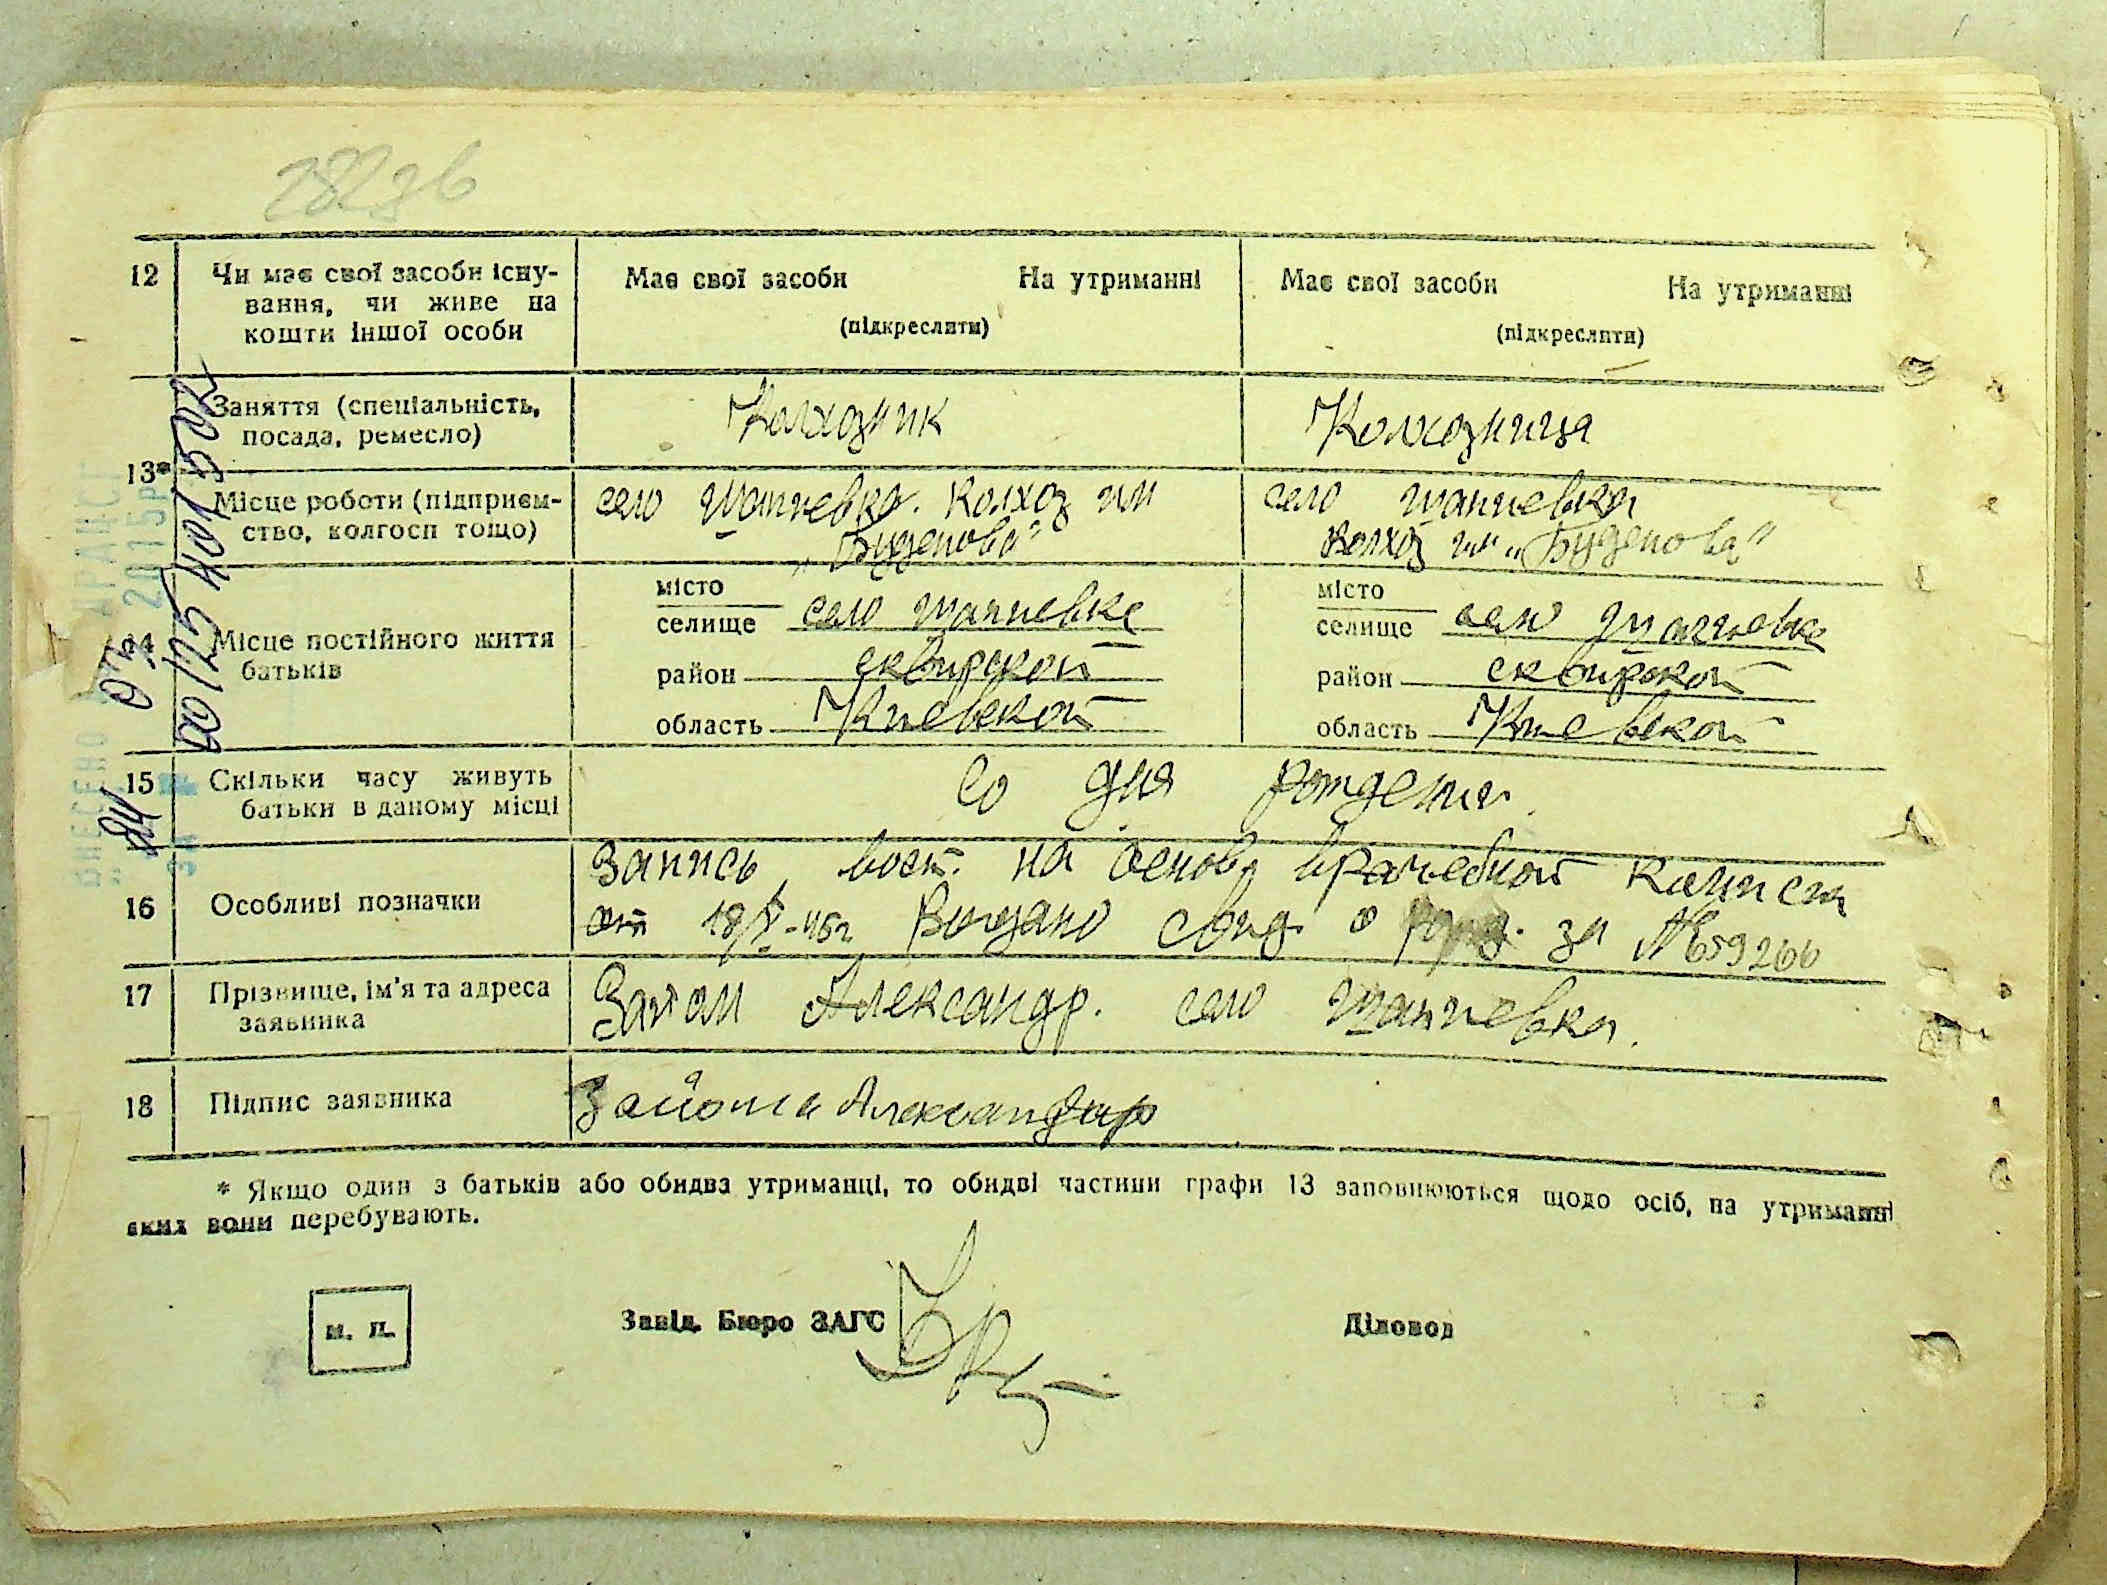 12 Чи має свої засоби існу-
вання, чи живе на
кошти іншої особи
Має свої засоби На утриманні
(підкреслити)
Має свої засоби На утриманні
(підкреслити)
13*
Заняття (спеціальність,
посада, ремесло)
Колхозник
Колхозница
Місце роботи (підприєм-
ство, колгосп тощо)
село Шапиевка. Колхоз им
„Буденова"
село Шапиевка
Колхоз им „Буденова"
14 Місце постійного життя
батьків
місто
селище село Шапиевке
район сквирской
область Киевской
місто
селище село Шапиевке
район сквирской
область Киевской
15 Скільки часу живуть
батьки в даному місці
Со дня рождения.
16 Особливі позначки
Запись вост. на основ. врачебной комисси
от 18/X-45г Выдано свид. о рожд. за № 659266
17 Прізвище, ім'я та адреса
заявника
Александр. село Шапиевка.
18 Підпис заявника
Александр
* Якщо один з батьків або обидва утриманці, то обидві частини графи 13 заповнюються щодо осіб, на утриманні
яких вони перебувають.
м. п.
Завід. Бюро ЗАГС
Діловод
00125401502
ВНЕСЕНО ДО
2015р